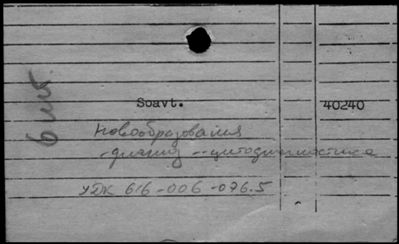 6 шб.
Soavt. 40240
Новообразования
-диагноз --цитодиагностика
УДК 616-006-076.5